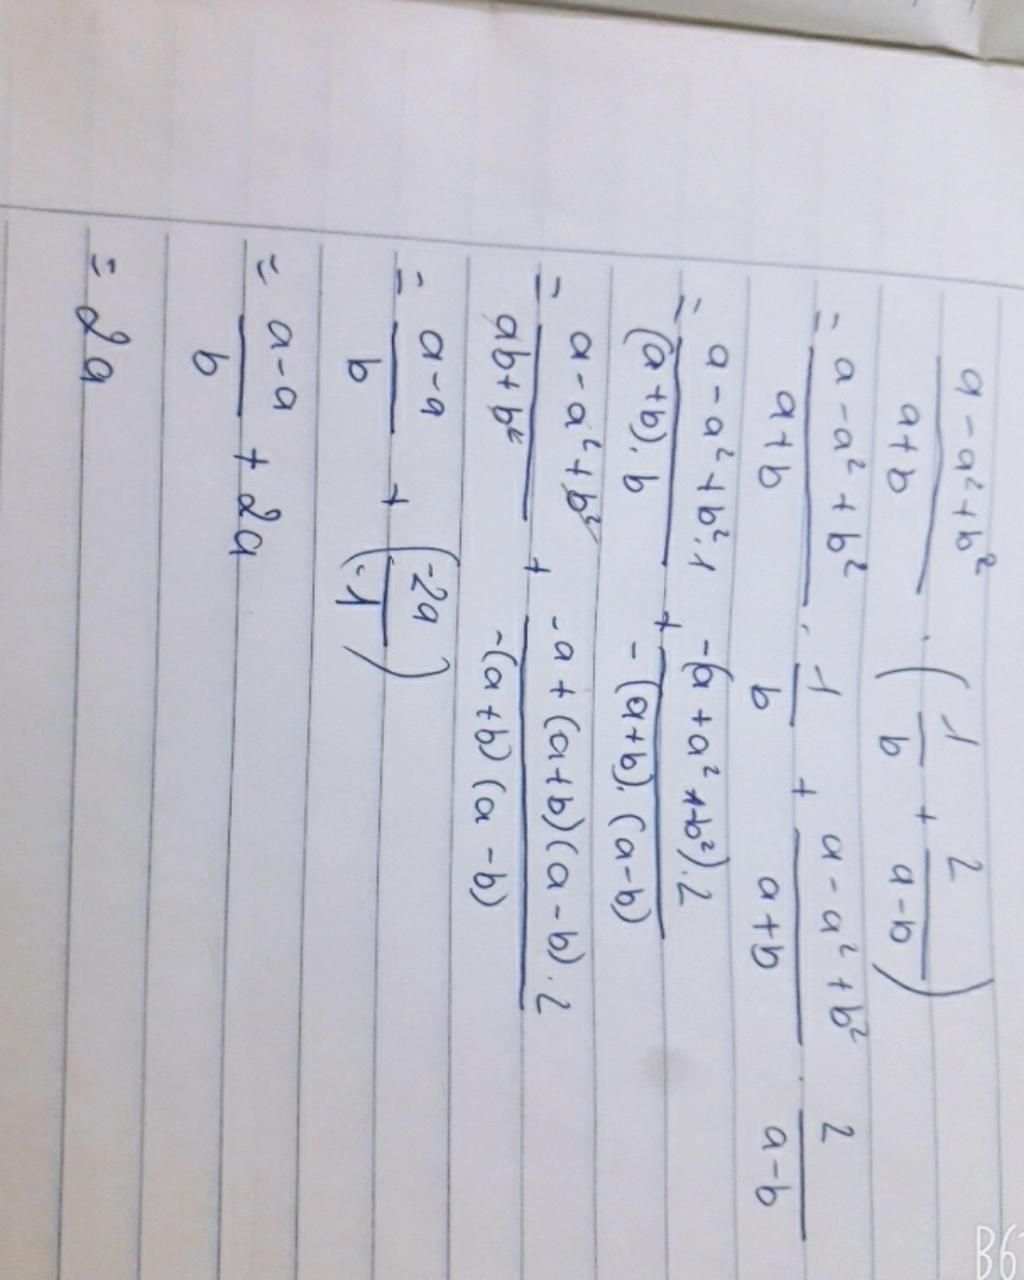 a - a² + b² / a + b . ( 1/b + 2/a - b )
= a - a² + b² / a + b . 1/b + a - a² + b² / a + b . 2 / a - b
= a - a² + b² . 1 / (a + b) . b + -(a + a² + b²) . 2 / -(a + b) . (a - b)
= a - a² + b² / ab + b² + -a + (a + b)(a - b) . 2 / -(a + b)(a - b)
= a - a / b + ( -2a / -1 )
= a - a / b + 2a
= 2a
B6